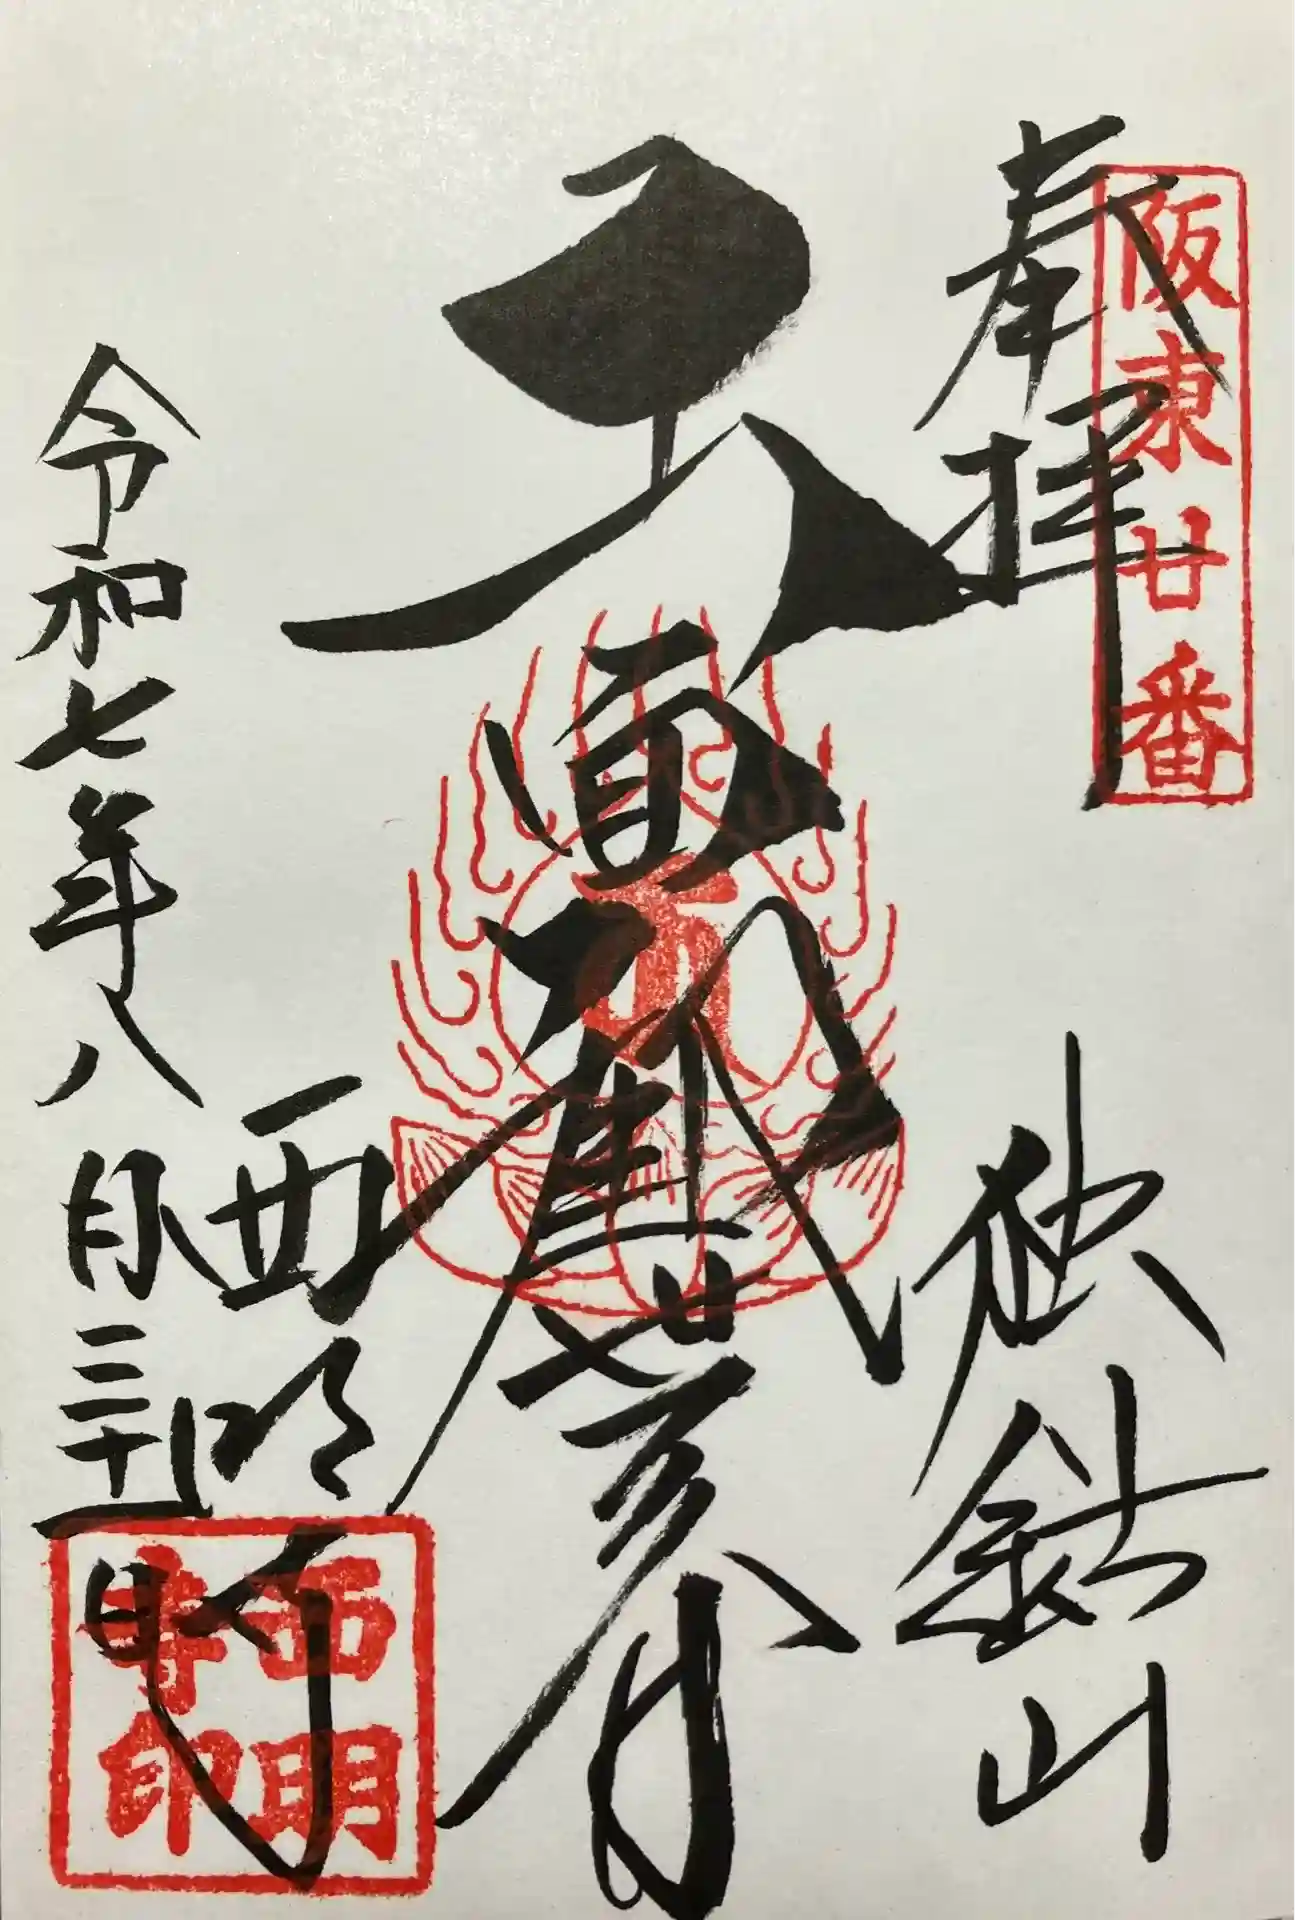 奉拝
阪東廿番
独鈷山
面観世音
西明寺
令和七年八月三十一日
西明寺印